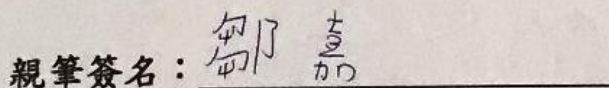 親筆簽名：鄒 嘉